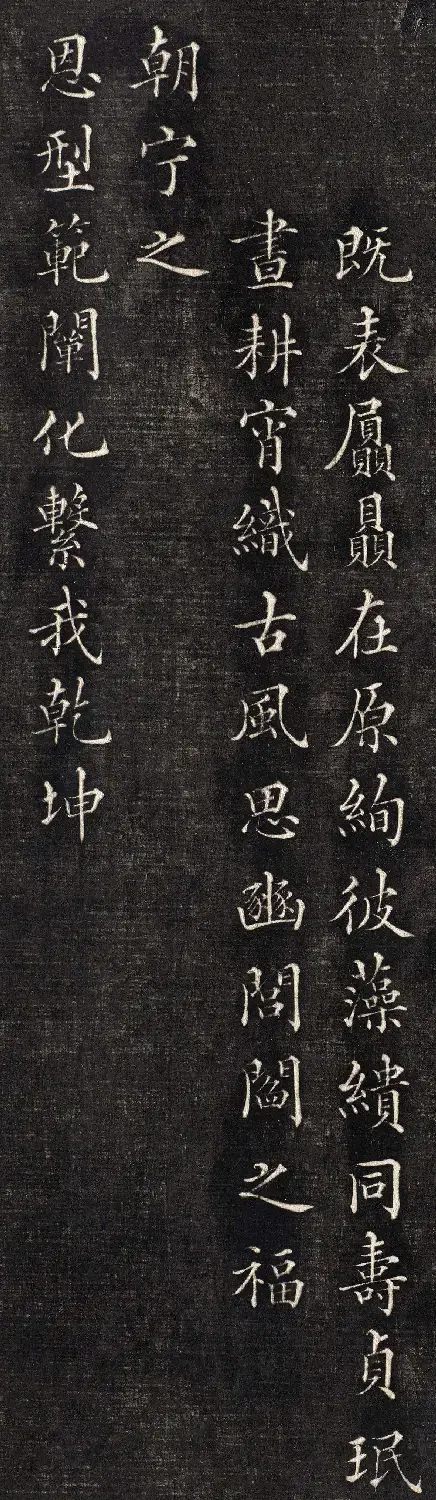 既表屭贔在原絢彼藻繢同壽貞珉
晝耕宵織古風思豳閭閻之福
朝宁之
恩型範闡化繫我乾坤